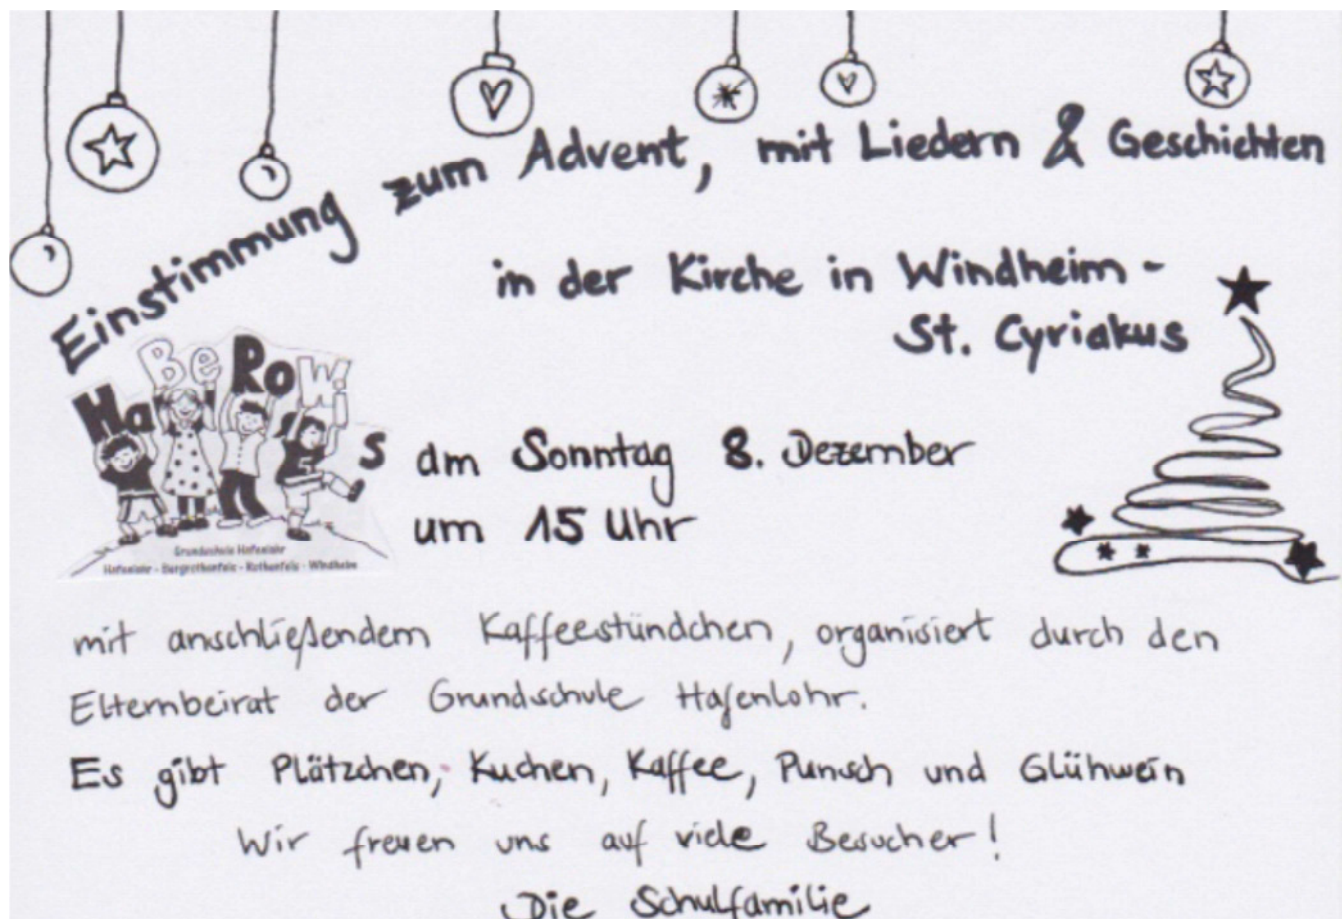 Einstimmung zum Advent, mit Liedern & Geschichten
in der Kirche in Windheim -
St. Cyriakus
HaBeRoWi
s
am Sonntag 8. Dezember
um 15 Uhr
Grundschule Hafenlohr
Hafenlohr - Bergrothenfels - Rothenfels - Windheim
mit anschließendem Kaffeestündchen, organisiert durch den
Elternbeirat der Grundschule Hafenlohr.
Es gibt Plätzchen, Kuchen, Kaffee, Punsch und Glühwein
Wir freuen uns auf viele Besucher!
Die Schulfamilie